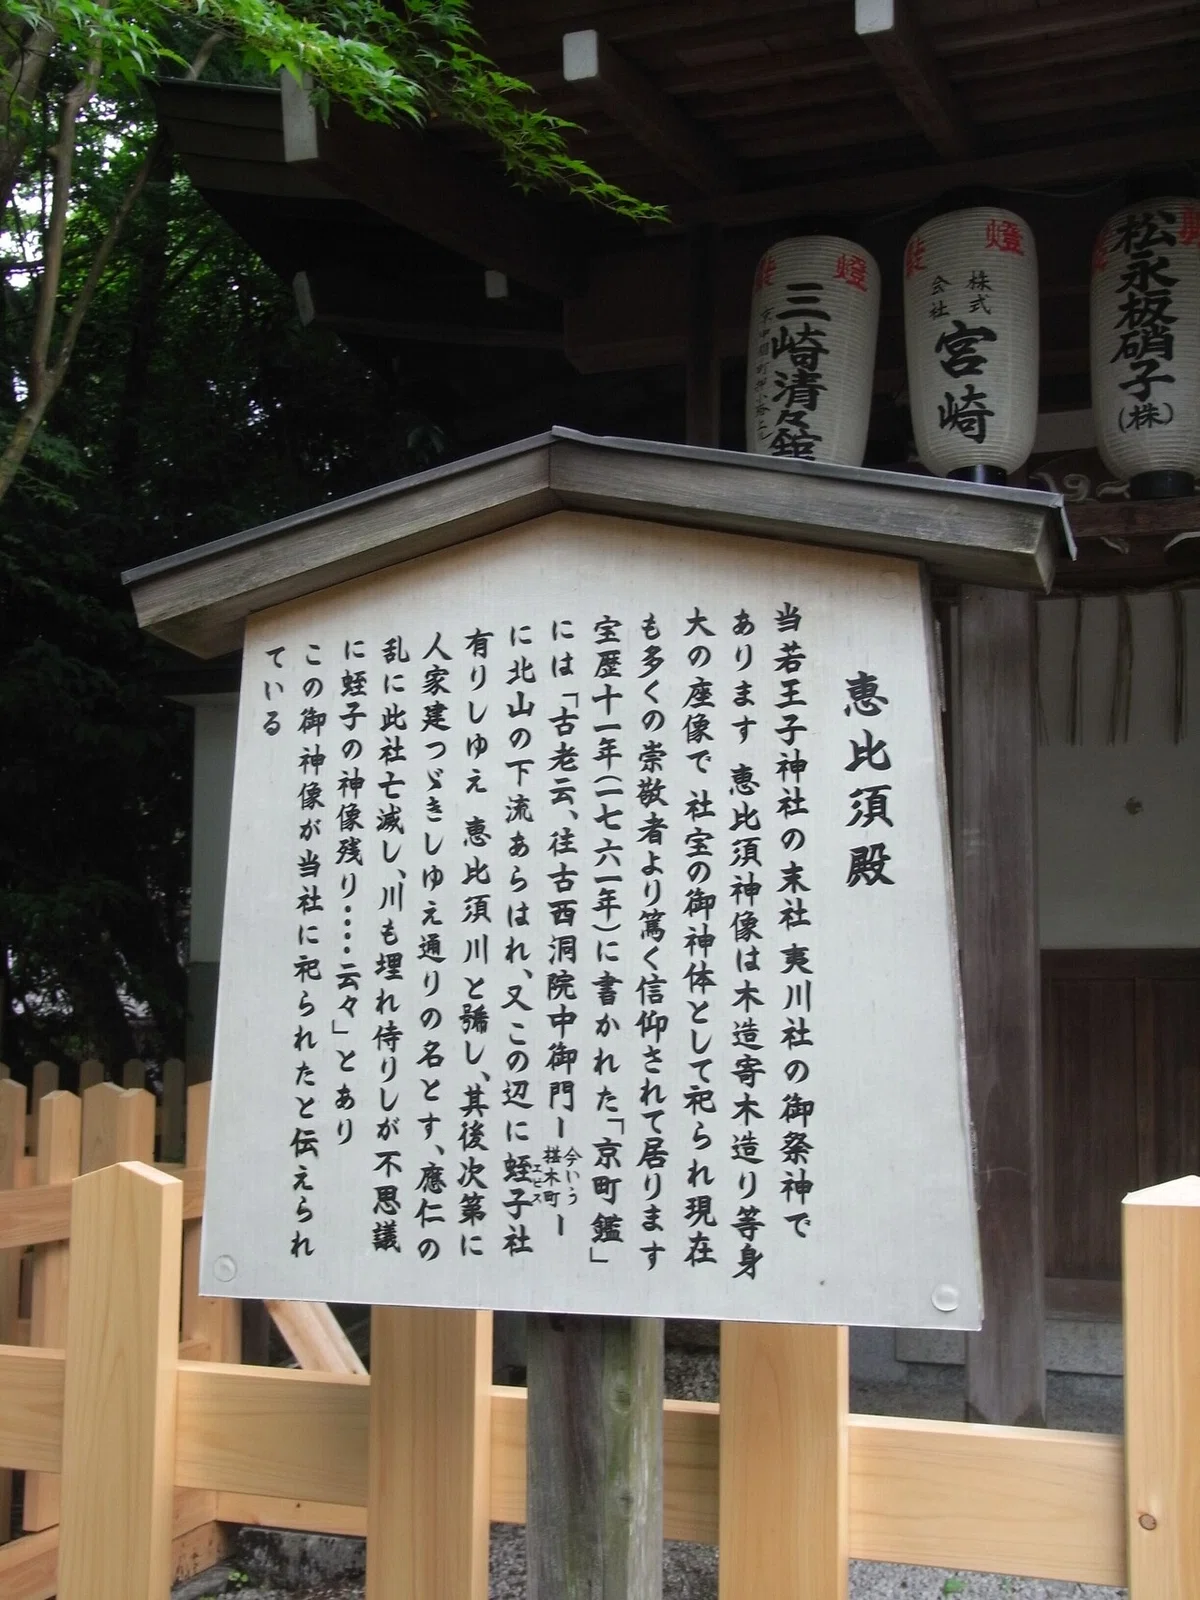 恵比須殿
当若王子神社の末社 夷川社の御祭神で
あります 恵比須神像は木造寄木造り等身
大の座像で 社宝の御神体として祀られ現在
も多くの崇敬者より篤く信仰されて居ります
宝歴十一年(一七六一年)に書かれた「京町鑑」
には「古老云、往古西洞院中御門ー今いう椹木町ー
に北山の下流あらはれ、又この辺に蛭子社
エビス
有りしゆえ 恵比須川と號し、其後次第に
人家建つゞきしゆえ通りの名とす、應仁の
乱に此社亡滅し、川も埋れ侍りしが不思議
に蛭子の神像残り‥‥云々」とあり
この御神像が当社に祀られたと伝えられ
ている
松永板硝子(株)
燈
株式会社
宮崎
燈
三崎清々館